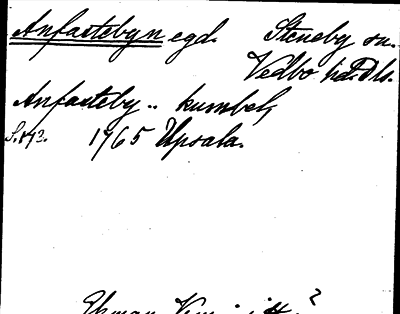 Anfastebyn egd. Steneby sn.
Vedbo hd. Dls.
Anfasteby .. kumbel,
1765 Upsala.
Ekman